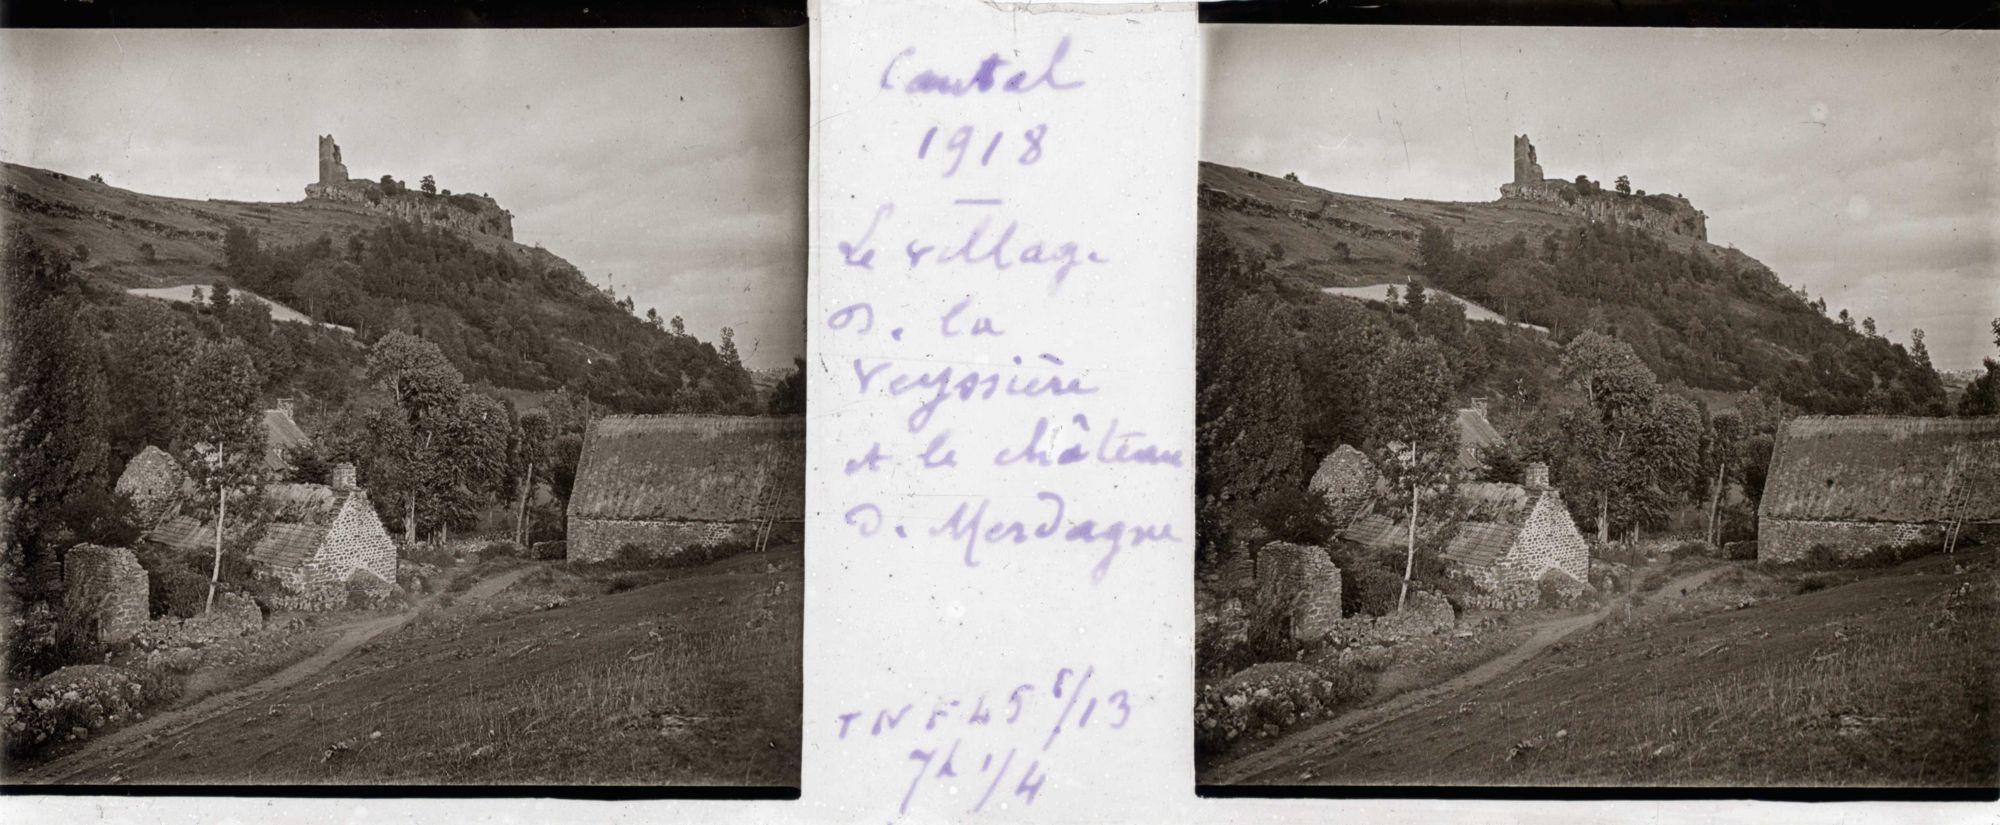 Cantal
1918
Le village
D. la
Veyssière
et le château
D. Merdagne
TNF L5 8/13
7h 1/4